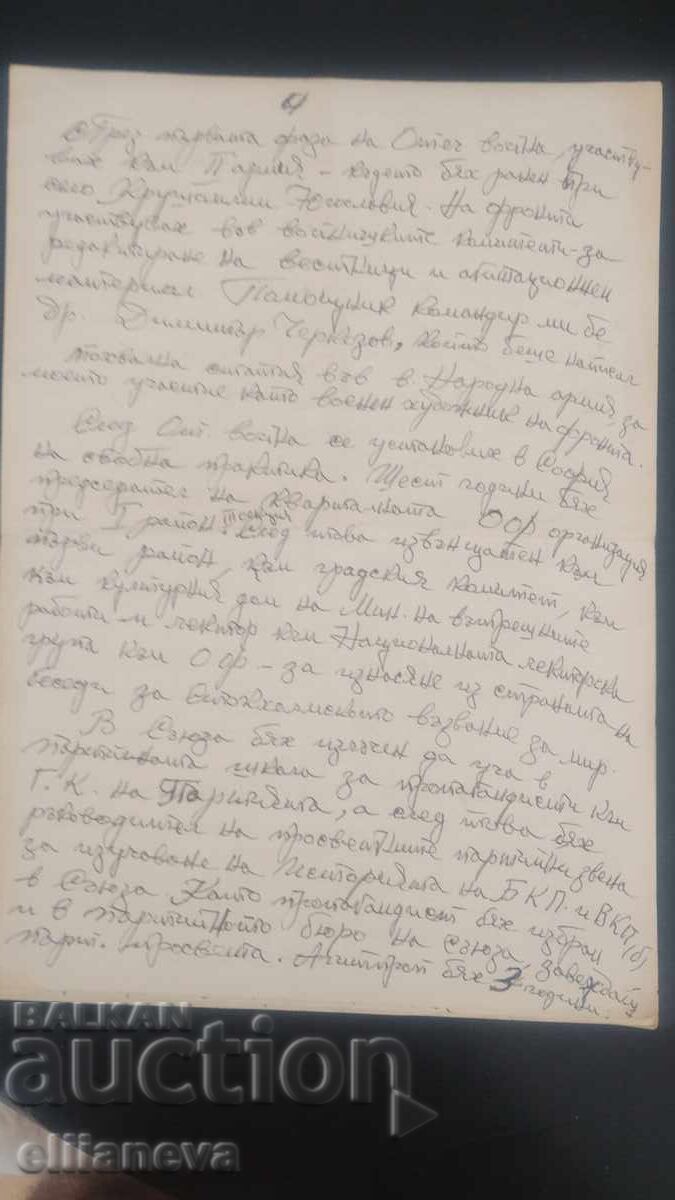 4
През първата фаза на Отеч война, участву-
вах към Париця - където бях ранен при
село Югославия. На фронта
участвувах във войнишките комитети - за
редактиране на вестници и агитационнен
материал Помощник командир ми бе
др. Димитър Черкезов, който беше написал
похвална статия във в. Народна армия, за
моето участие като военен художник на фронта.
След От. война се установих в София
на свободна практика. Шест години бях
председател на кварталната ООФ организация
при I район. След това извънщатен към
първи район, към градския комитет, към
към културния дом на Мин. на вътрешните
работи и лектор към Националната лекторска
група към ООФ - за изнасяне из страната на
беседи за Стокхолмското възвание за мир.
В Съюза бях изпратен да уча в
партийната школа за пропагандисти към
Г. К. на Партията, а след това бях
ръководител на просветните партийни звена
за изучаване на Историята на БКП. и ВКП (б)
в Съюза Като пропагандист бях избран
и в партийното бюро на Съюза, завеждащ
парт. просвета. Агитпроп бях 3 години.
BALKAN
auction
ellianeva